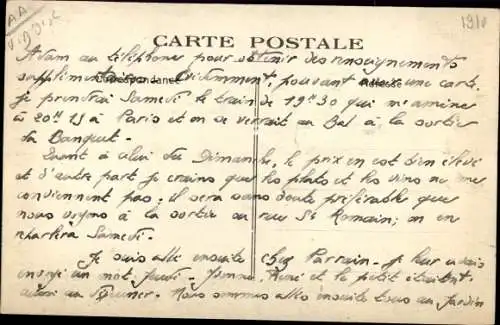 AA
1910
CARTE POSTALE
Correspondance
Adresse
au téléphone pour obtenir des renseignements
supplémentaires. Evidemment, pouvant une carte.
je prendrai Samedi le train de 19h30 qui m'amène
à 20h15 à Paris et on se verrait au Bal à la sortie
du Banquet.
Quant à celui du Dimanche, le prix en est bien élevé
et d'autre part je crains que les plats et les vins ne me
conviennent pas; il sera sans doute préférable que
nous voyions à la sortie au rue St Romain; on en
parlera Samedi.
Je suis allé ensuite chez Parrain. Je leur avais
envoyé un mot Jeudi. et le petit étaient
au déjeuner. Nous sommes allés ensuite tous au Jardin